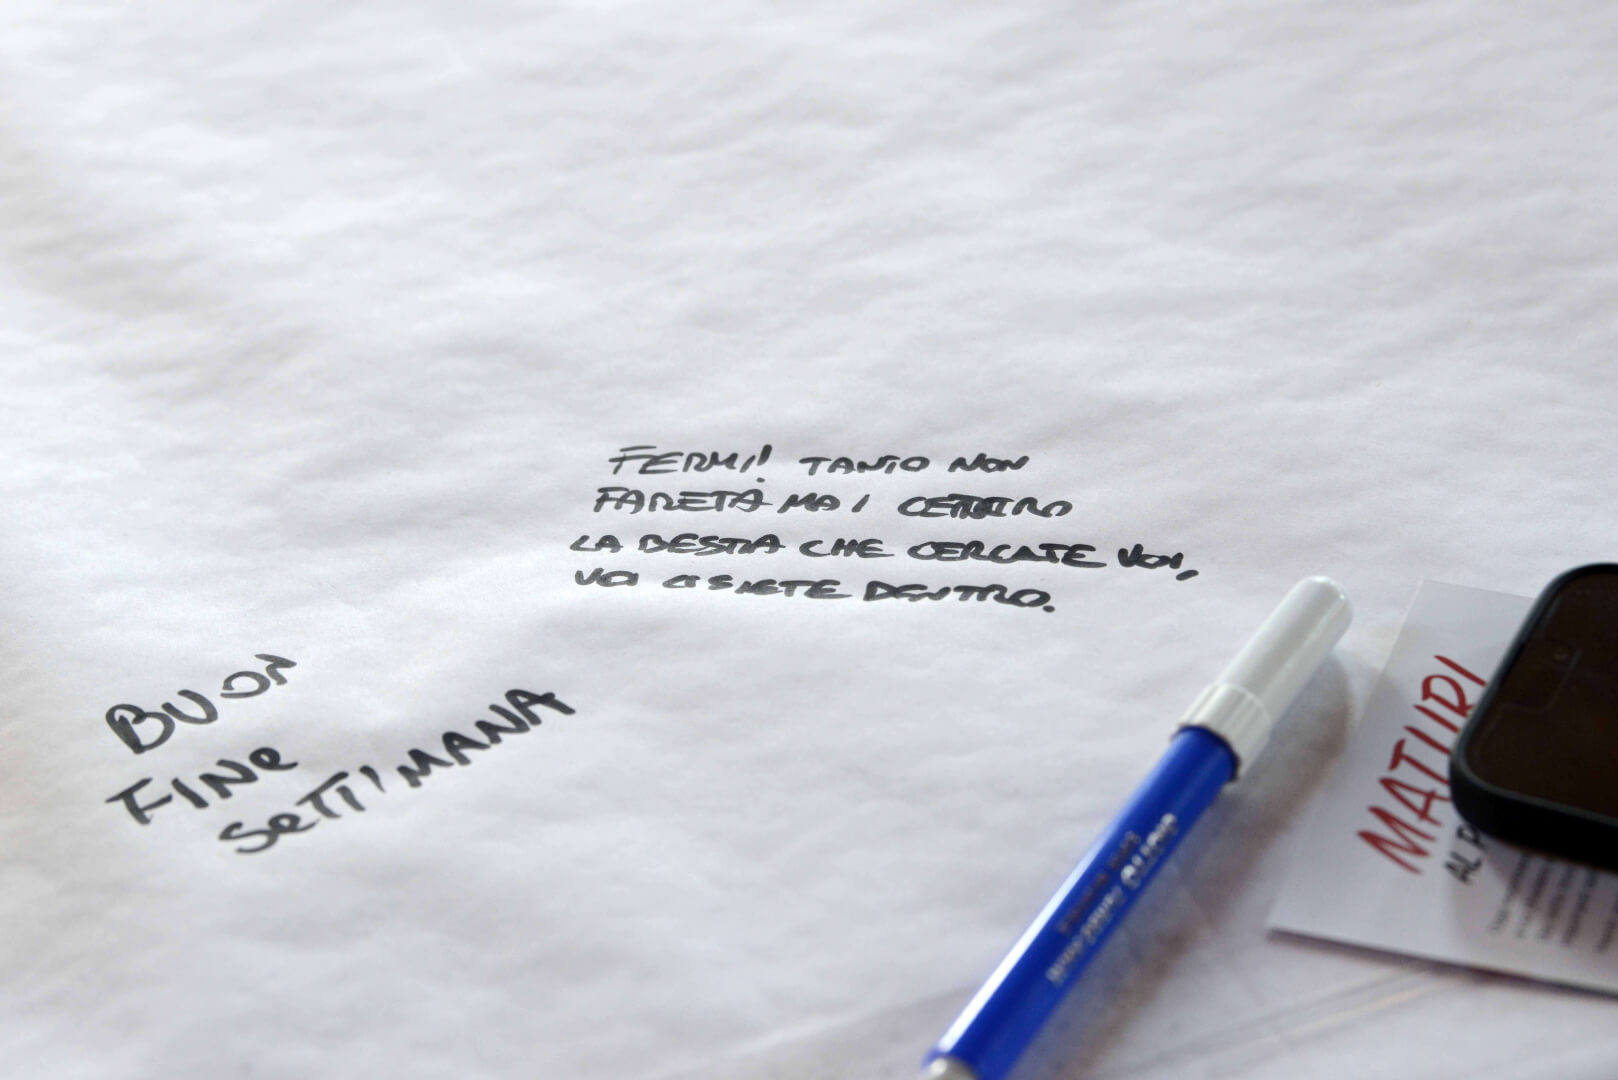 FERMI! TANTO NON
FARETA MAI CENTRO
LA BESTIA CHE CERCATE VOI,
VOI CI SIETE DENTRO.
BUON
FINe
SeTTIMANA
MATURI
AL P